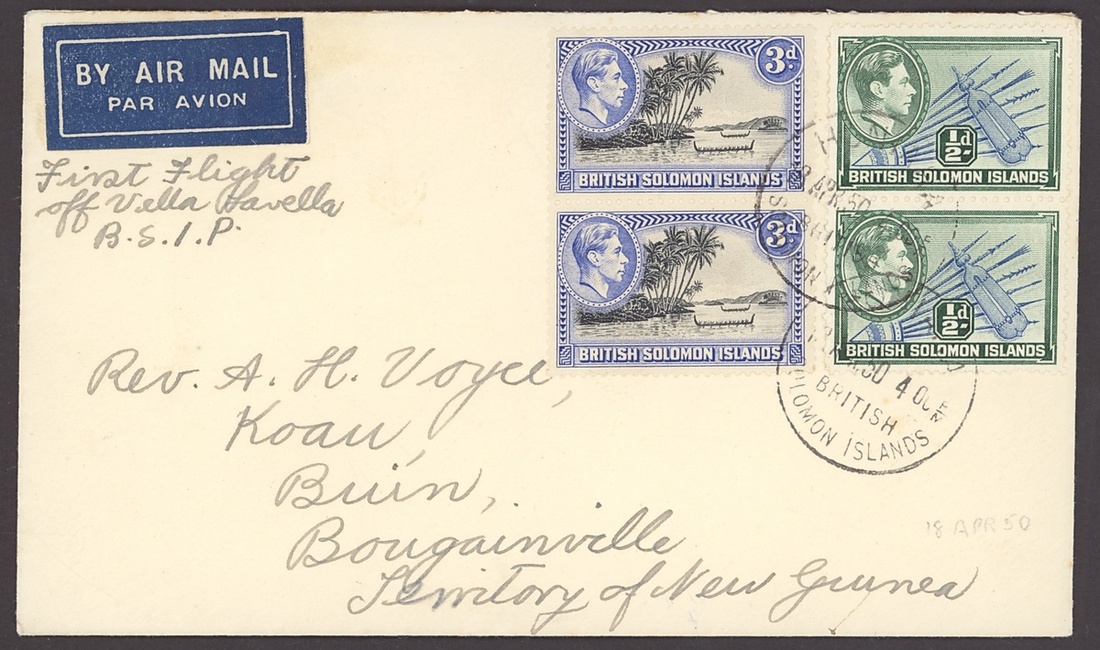 BY AIR MAIL
PAR AVION
First Flight
off Vella Lavella
B.S.I.P.
3d.
BRITISH SOLOMON ISLANDS
½d
BRITISH SOLOMON ISLANDS
3d.
BRITISH SOLOMON ISLANDS
½d
BRITISH SOLOMON ISLANDS
APR.50
4 00 PM
BRITISH
SOLOMON ISLANDS
Rev. A. H. Voyce,
Koau,
Buin,
Bougainville
Territory of New Guinea
18 APR 50